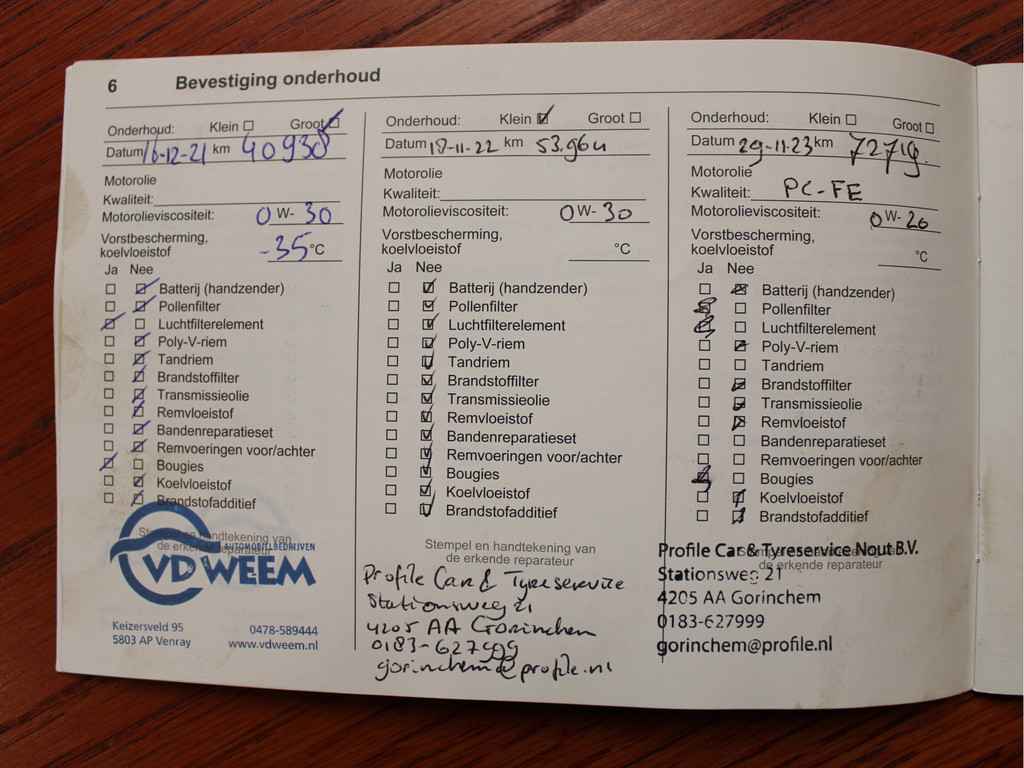 6 Bevestiging onderhoud
Onderhoud: Klein Groot
Datum 16-12-21 km 40938
Motorolie
Kwaliteit:
Motorolieviscositeit: 0 W- 30
Vorstbescherming,
koelvloeistof -35 °C
Ja Nee
Batterij (handzender)
Pollenfilter
Luchtfilterelement
Poly-V-riem
Tandriem
Brandstoffilter
Transmissieolie
Remvloeistof
Bandenreparatieset
Remvoeringen voor/achter
Bougies
Koelvloeistof
Brandstofadditief
Stempel en handtekening van
de erkende reparateur
AUTOMOBIELBEDRIJVEN
VD WEEM
Keizersveld 95 0478-589444
5803 AP Venray www.vdweem.nl
Onderhoud: Klein Groot
Datum 18-11-22 km 53.964
Motorolie
Kwaliteit:
Motorolieviscositeit: 0 W- 30
Vorstbescherming,
koelvloeistof °C
Ja Nee
Batterij (handzender)
Pollenfilter
Luchtfilterelement
Poly-V-riem
Tandriem
Brandstoffilter
Transmissieolie
Remvloeistof
Bandenreparatieset
Remvoeringen voor/achter
Bougies
Koelvloeistof
Brandstofadditief
Stempel en handtekening van
de erkende reparateur
Profile Car & Tyreservice
Stationsweg 21
4205 AA Gorinchem
0183-627999
gorinchem@profile.nl
Onderhoud: Klein Groot
Datum 29-11-23 km 72719.
Motorolie
Kwaliteit: PC-FE
Motorolieviscositeit: 0 W- 20
Vorstbescherming,
koelvloeistof °C
Ja Nee
Batterij (handzender)
Pollenfilter
Luchtfilterelement
Poly-V-riem
Tandriem
Brandstoffilter
Transmissieolie
Remvloeistof
Bandenreparatieset
Remvoeringen voor/achter
Bougies
Koelvloeistof
Brandstofadditief
de erkende reparateur
Profile Car & Tyreservice Nout B.V.
Stationsweg 21
4205 AA Gorinchem
0183-627999
gorinchem@profile.nl